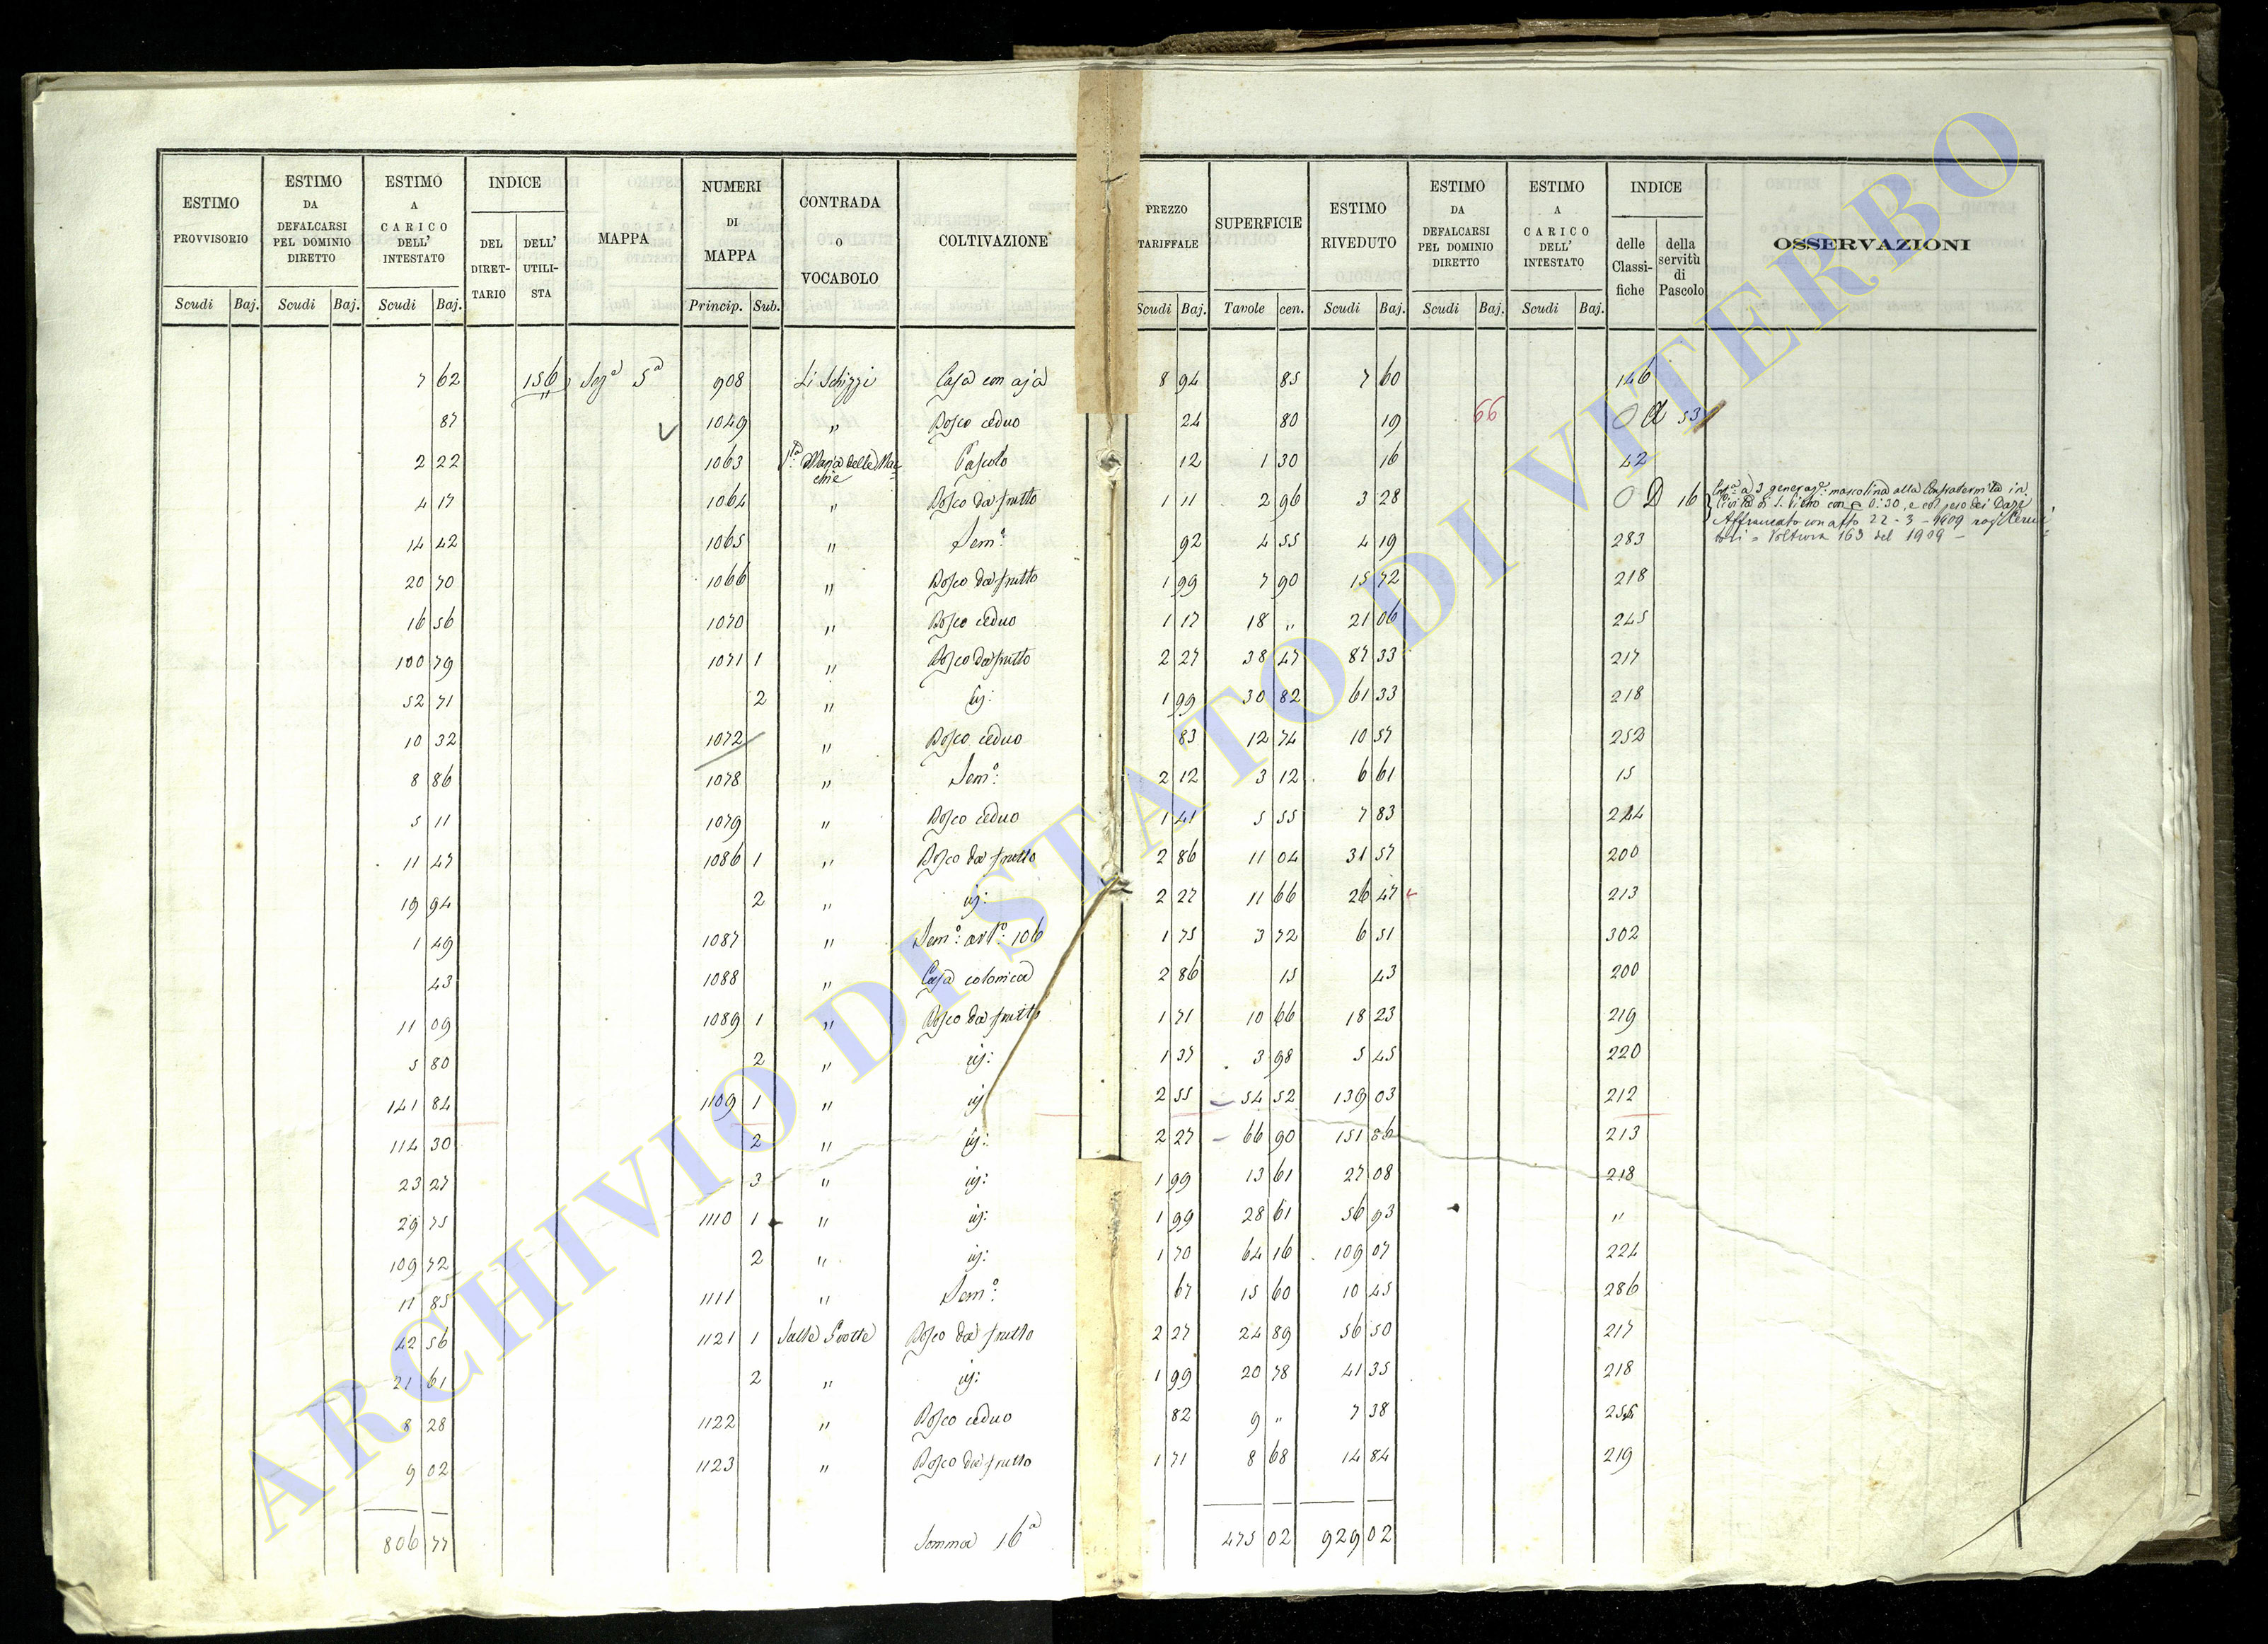 ESTIMO PROVVISORIO Scudi Baj.
ESTIMO DA DEFALCARSI PEL DOMINIO DIRETTO Scudi Baj.
ESTIMO A CARICO DELL' INTESTATO Scudi Baj.
INDICE DEL DIRET-TARIO DELL' UTILI-STA
MAPPA
NUMERI DI MAPPA Princip. Sub.
CONTRADA O VOCABOLO
COLTIVAZIONE
PREZZO TARIFFALE Scudi Baj.
SUPERFICIE Tavole cen.
ESTIMO RIVEDUTO Scudi Baj.
ESTIMO DA DEFALCARSI PEL DOMINIO DIRETTO Scudi Baj.
ESTIMO A CARICO DELL' INTESTATO Scudi Baj.
INDICE delle Classi-fiche della servitù di Pascolo
OSSERVAZIONI
7 62 156 Sez.a 5a 908 Li Schizzi Casa con aja 8 94 85 7 60 146
87 1049 " Bosco ceduo 24 80 19 66 0 a 53
2 22 1063 S.ta Maria delle Mac= chie Pascolo 12 1 30 16 42
4 17 1064 " Bosco da frutto 1 11 2 96 3 28 0 D 16
a 3 generaz.e mascolina alla Confraternita in
Civita di S. Pietro con 0:30, e col peso dei Dazi
Affrancato con atto 22-3-1909
Voltura 163 del 1909 -
14 42 1065 " Sem.o 92 4 55 4 19 283
20 70 1066 " Bosco da frutto 1 99 7 90 15 72 218
16 56 1070 " Bosco ceduo 1 17 18 " 21 06 245
100 79 1071 1 " Bosco da frutto 2 27 38 47 87 33 217
52 71 2 " id: 1 99 30 82 61 33 218
10 32 1072 " Bosco ceduo 83 12 74 10 57 252
8 86 1078 " Sem.o 2 12 3 12 6 61 15
5 11 1079 " Bosco ceduo 1 41 5 55 7 83 244
11 47 1086 1 " Bosco da frutto 2 86 11 04 31 57 200
19 94 2 " id: 2 27 11 66 26 47 213
1 49 1087 " Sem.o 106 1 75 3 72 6 51 302
43 1088 " Casa colonica 2 86 15 43 200
11 09 1089 1 " Bosco da frutto 1 71 10 66 18 23 219
5 80 2 " id: 1 37 3 98 5 45 220
141 84 1109 1 " id 2 55 54 52 139 03 212
114 30 2 " id: 2 27 66 90 151 86 213
23 27 3 " id: 1 99 13 61 27 08 218
29 75 1110 1 " id: 1 99 28 61 56 93 "
109 72 2 " id: 1 70 64 16 109 07 224
11 85 1111 " Sem.o 67 15 60 10 45 286
42 56 1121 1 Sulle Grotte Bosco da frutto 2 27 24 89 56 50 217
21 61 2 " id: 1 99 20 78 41 35 218
8 28 1122 " Bosco ceduo 82 9 " 7 38
9 02 1123 " Bosco da frutto 1 71 8 68 14 84 219
806 77 Somma 16a 475 02 929 02
ARCHIVIO DI STATO DI VITERBO